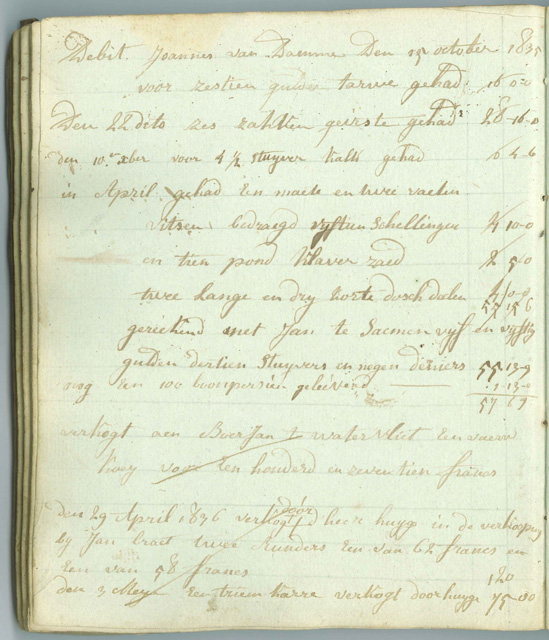 Debit Joannes van Damme Den 15 october 1835
voor zestien gulden tarwe gehad 16-0-0
Den 22 dito zes zakken geerste gehad 28-16-0
den 10 xber voor 4 1/2 stuyver kalk gehad 0 4-6
in April gehad Een maete en twee vaeten
vitsen bedraegd vyftien Schellingen 4/10-0
en tien pond klaver zaed 2/5-0
twee Lange en dry korte dosch dalen 4/0-0
57 15 6
gerekend met Jan te Saemen vyf en vyftig
gulden dertien Stuyvers en negen deniers 55 13-9
nog Een 100 boonpersien geleeverd 1-13-0
57 6 9
verkogt aen Boer Jan te watervliet Een vaere
koey voor Een honderd en zeventien francs
den 29 April 1836 verkogt door d'heer huyge in de verkooping
by Jan Braet twee Runders Een van 62 francs en
Een van 58 francs
120
den 3 Meye Een triem karre verkogt door huyge 75-00